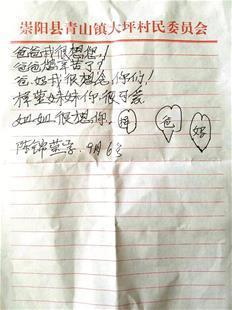 崇阳县青山镇大坪村民委员会
爸爸我很想想!
爸爸想辛苦了?
爸妈我很想念你们!
梓萱妹妹你很可爱
姐姐很想你。 梓 爸 妈
陈锦萱写. 9月6号